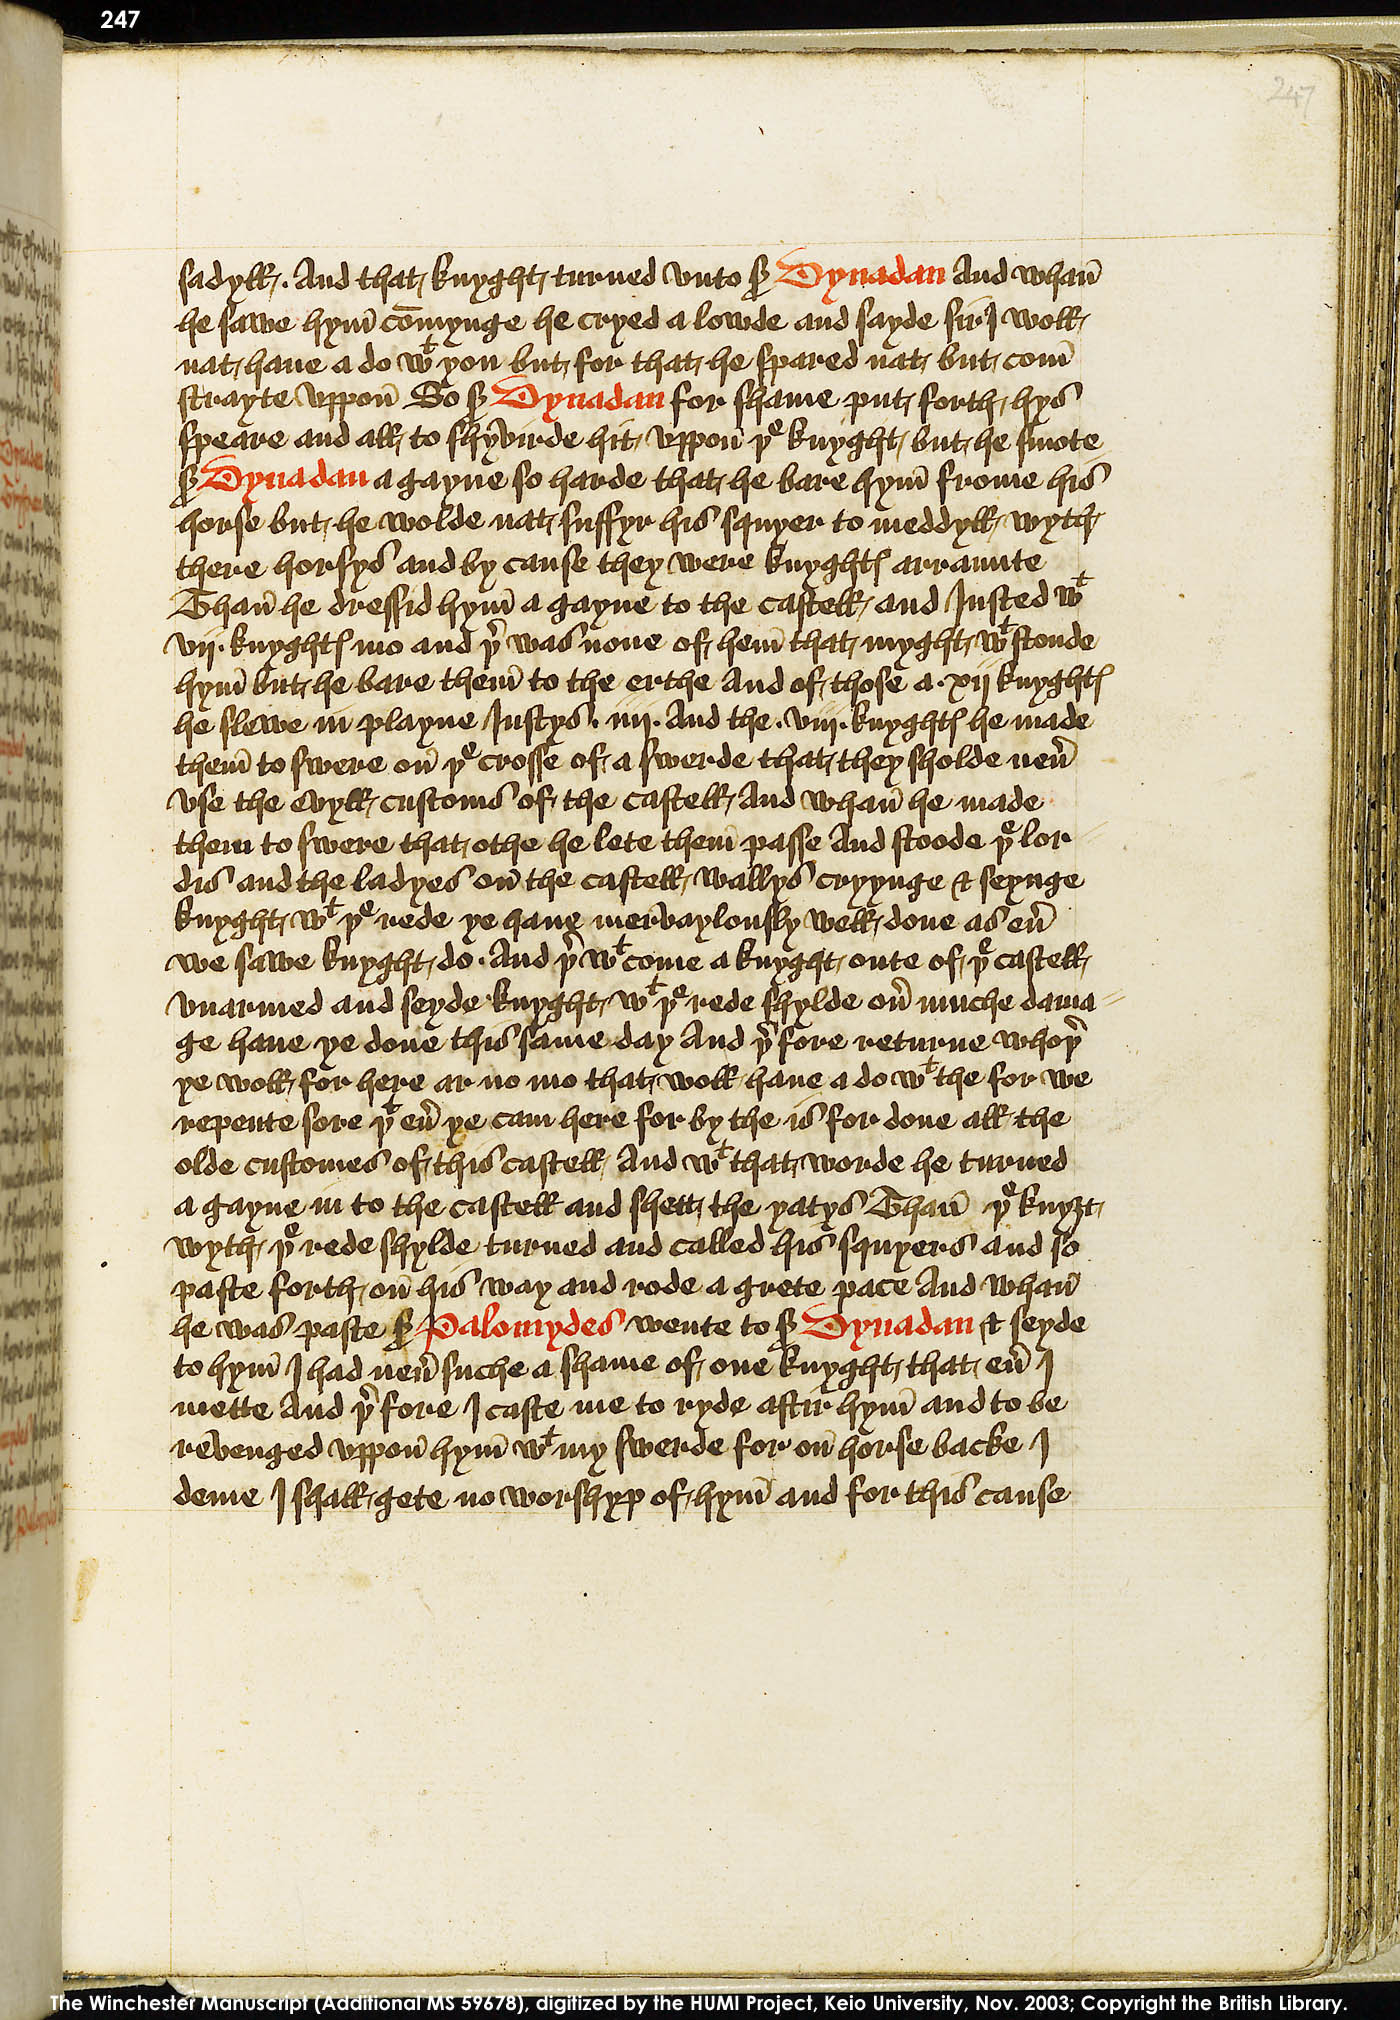 247
247
sadyll . And that knyght turned vnto sr Dynadan And whan̄
he sawe hym̄ com̄ynge he cryed a lowde and sayde sir I woll
nat haue a do wt you but for that he spared nat but com̄
strayte vppon̄ So sr Dynadan for shame put forth hys
speare and all to shyvirde hit vppon̄ þe knyght but he smote
sr Dynadan a gayne so harde that he bare hym̄ frome his
horse but he wolde nat suffyr his squyer to meddyll wyth
there horsys and by cause they were knyghtꝭ arraunte
Than̄ he dressid hym̄ a gayne to the castell and Justed wt
vij. knyghtꝭ mo and þr was none of hem̄ that myght wtstonde
hym̄ but he bare them̄ to the erthe And of those a .xij knyghtꝭ
he slewe in̄ playne Justys . iiij. And the . viij. knyghtꝭ he made
them̄ to swere on̄ þe crosse of a swerde that they sholde neū
vse the evyll customs of the castell And whan̄ he made
them to swere that othe he lete them̄ passe And stoode þe lor
dis and the ladyes on̄ the castell wallys cryynge & seynge
knyght wt þe rede ye haue mervaylously well done as eū
we sawe knyght do . And þr wt come a knyght oute of þe castell
vnarmed and seyde knyght wt þe rede shylde oū muche dama
ge haue ye done this same day And þr fore returne whoþr
ye woll for here ar no mo that woll haue a do wt the for we
repente sore þt eū ye cam here for by the is for done all the
olde customes of this castell And wt that worde he turned
a gayne in to the castell and shett the yatys Than̄ þe knyȝt
wyth þe rede shylde turned and called his squyers and so
paste forth on̄ his way and rode a grete pace And whan̄
he was paste sr Palomydes wente to sr Dynadan & seyde
to hym̄ I had neū suche a shame of one knyght that eū I
mette And þr fore I caste me to ryde aftir hym̄ and to be
revenged vppon̄ hym̄ wt my swerde for on̄ horse backe I
deme I shall gete no worshyp of hym̄ and for this cause
The Winchester Manuscript (Additional MS 59678), digitized by the HUMI Project, Keio University, Nov. 2003; Copyright the British Library.